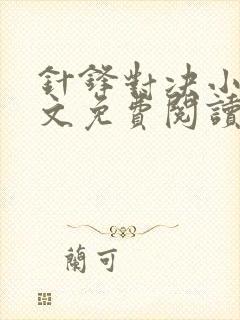 針鋒對决小
文免費閱讀
蘭可